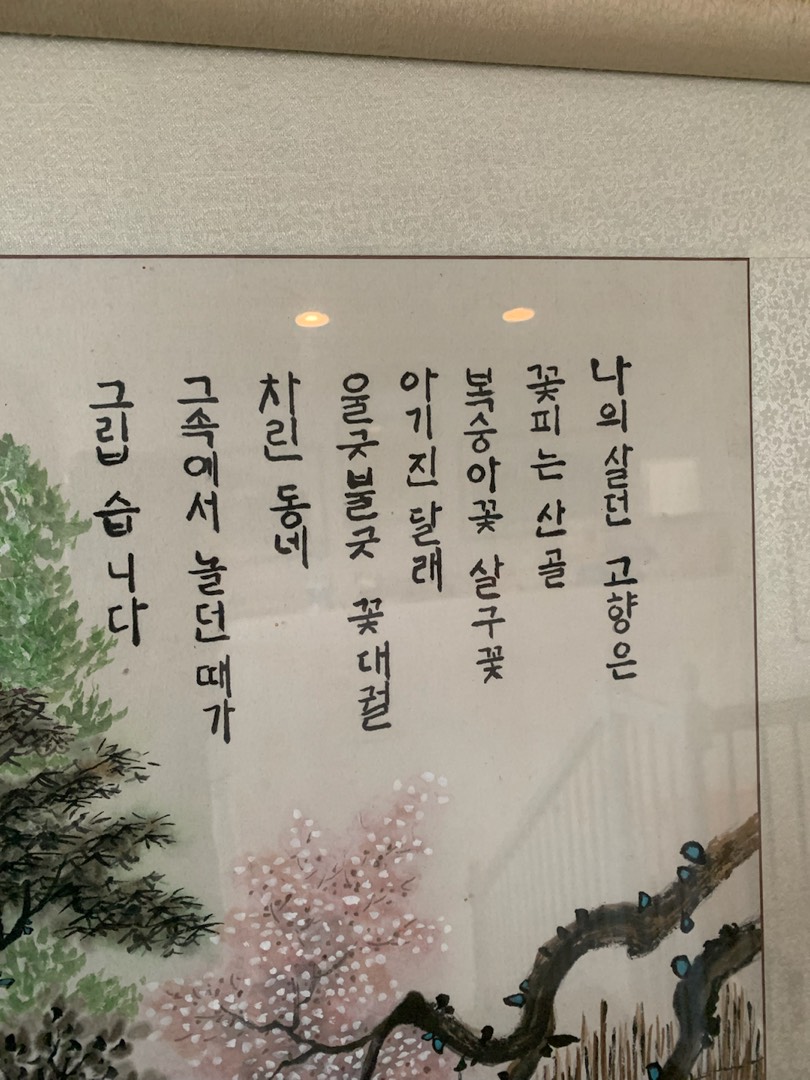 나의 살던 고향은
꽃피는 산골
복숭아꽃 살구꽃
아기 진달래
울긋불긋 꽃대궐
차린 동네
그속에서 놀던 때가
그립습니다